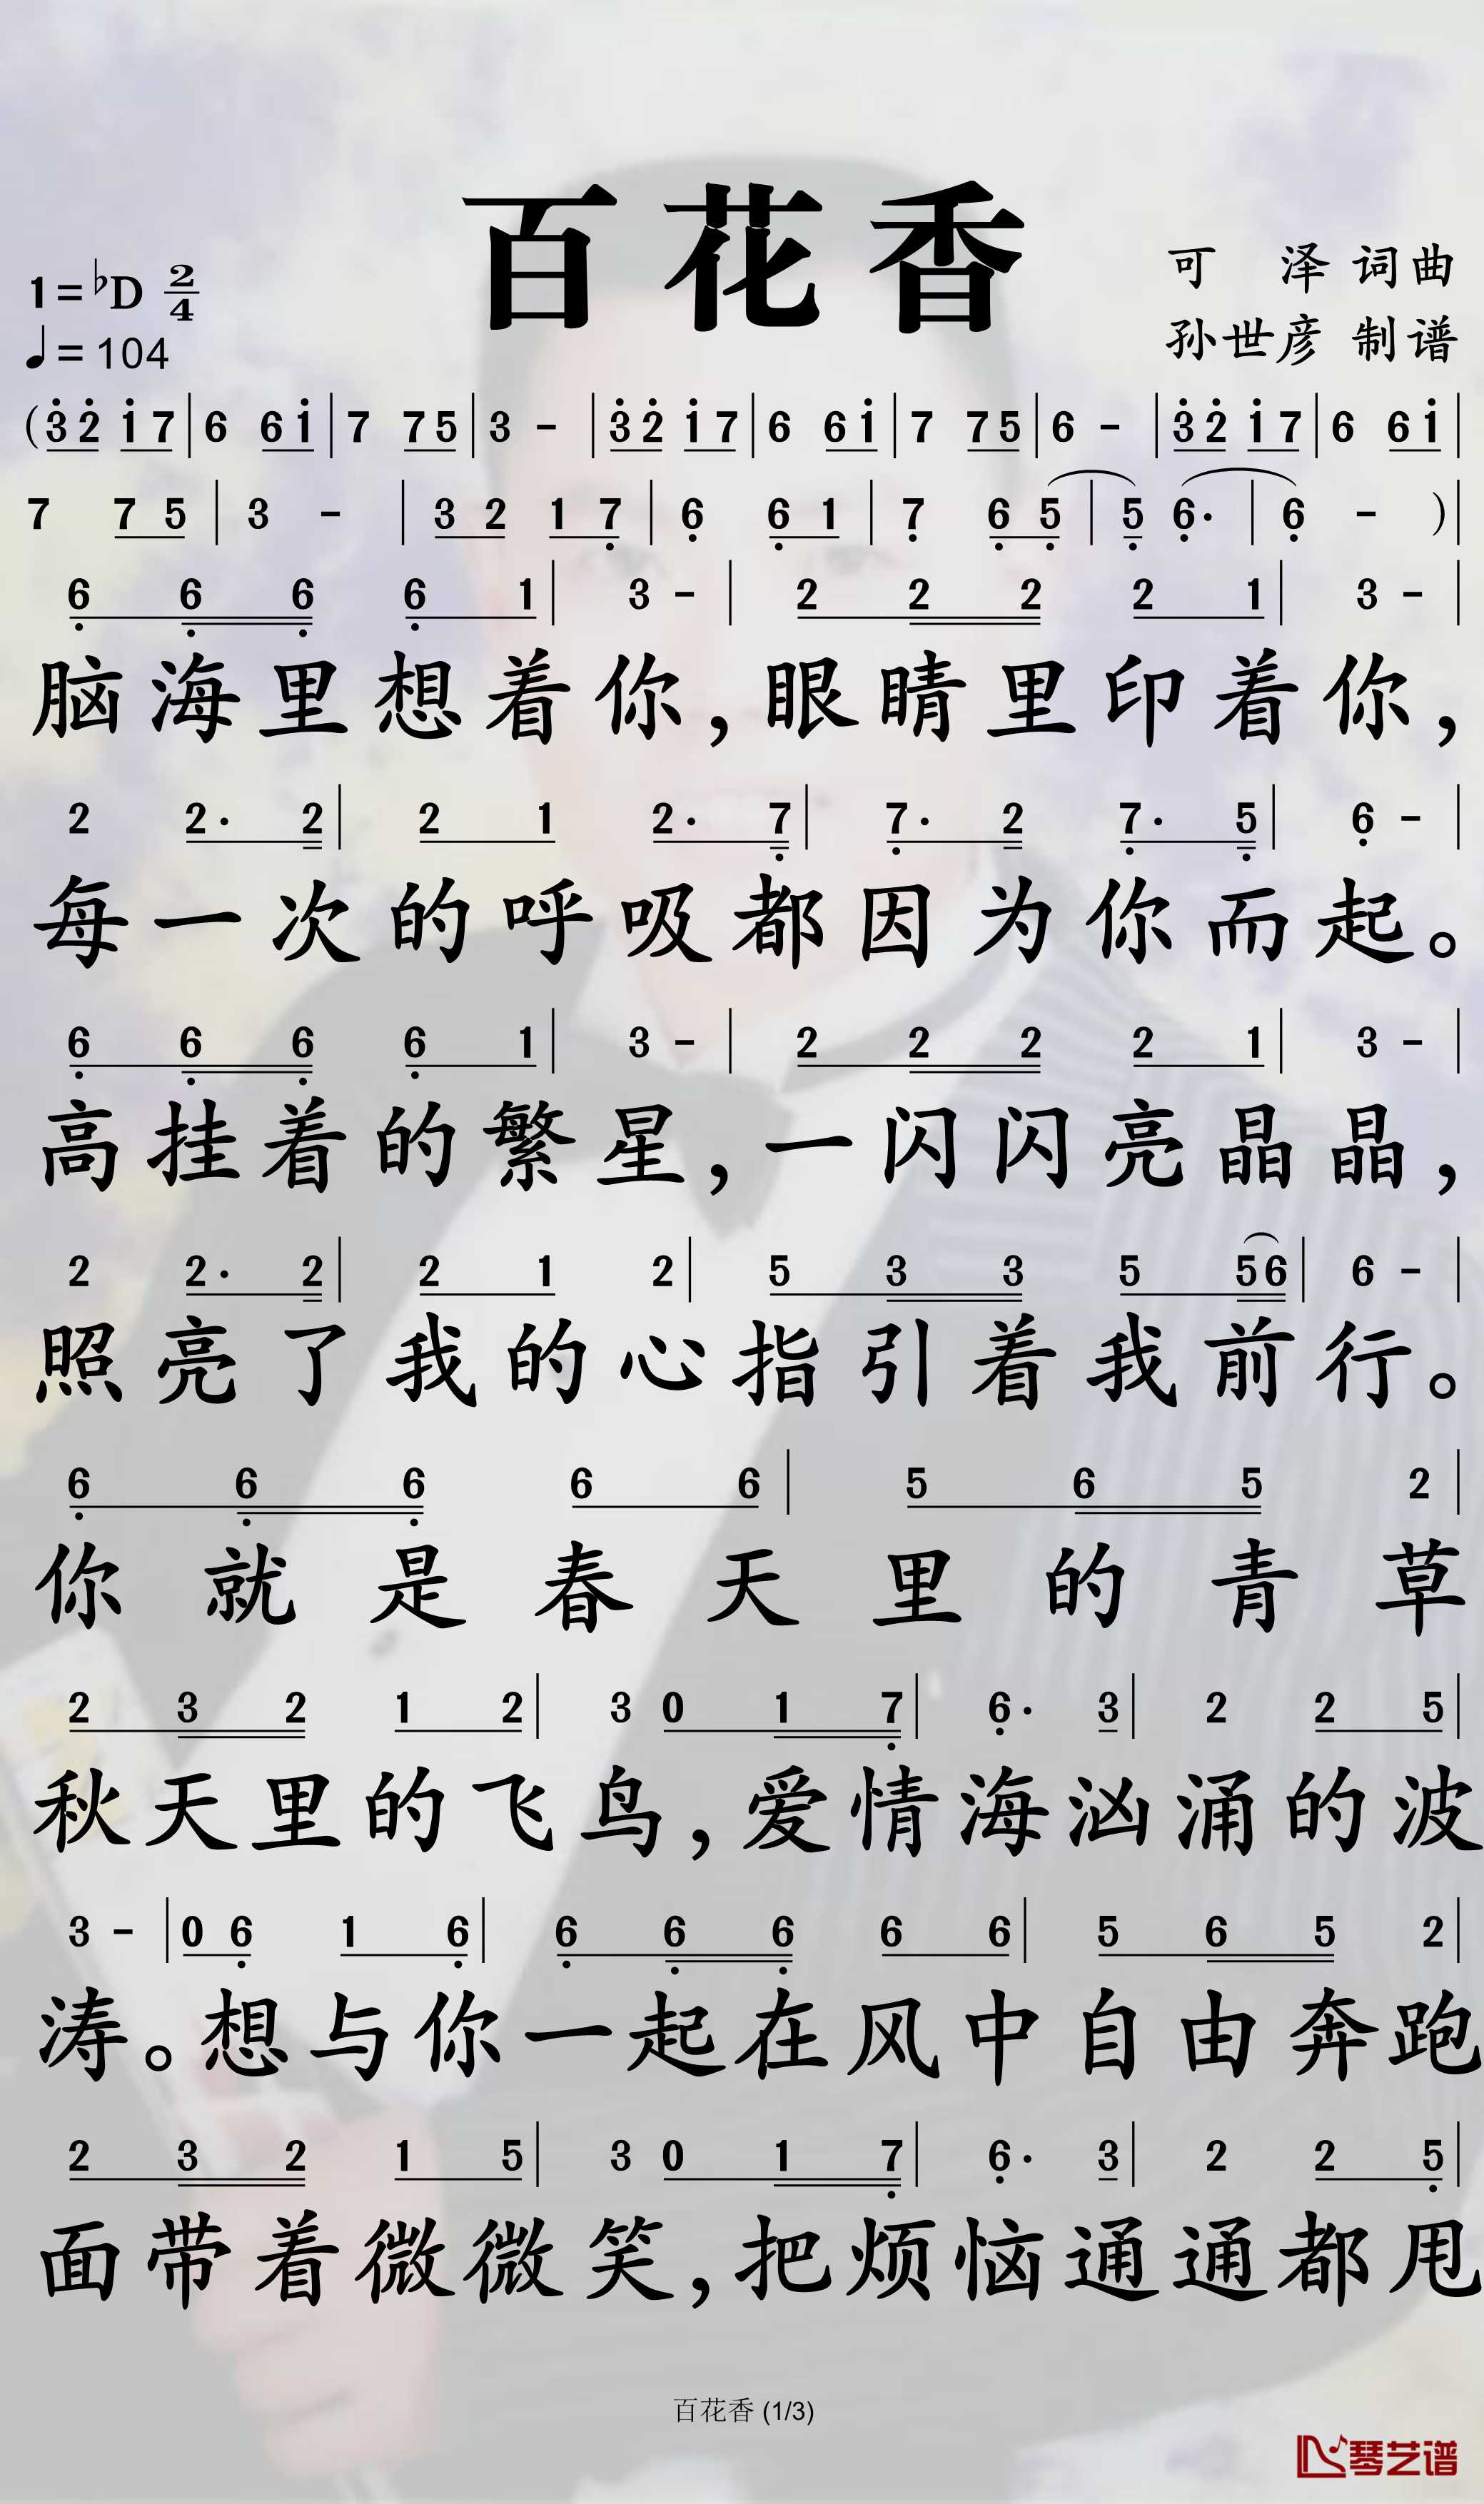 百花香
1=♭D 2/4
♩=104
可 泽 词曲
孙世彦 制谱
(3̇2̇ 1̇7|6 61̇|7 75|3 -|3̇2̇ 1̇7|6 61̇|7 75|6 -|3̇2̇ 1̇7|6 61̇|
7 75|3 -|32 17̣|6̣ 6̣1|7̣ 6̣5̣|5̣ 6̣·|6̣ -)|
6̣ 6̣ 6̣ 6̣ 1|3 -|2 2 2 2 1|3 -|
脑海里想着你,眼睛里印着你,
2 2· 2|2 1 2· 7̣|7̣· 2 7̣· 5̣|6̣ -|
每一次的呼吸都因为你而起。
6̣ 6̣ 6̣ 6̣ 1|3 -|2 2 2 2 1|3 -|
高挂着的繁星,一闪闪亮晶晶,
2 2· 2|2 1 2|5 3 3 5 56|6 -|
照亮了我的心指引着我前行。
6̣ 6̣ 6̣ 6 6|5 6 5 2|
你就是春天里的青草
2 3 2 1 2|3 0 1 7̣|6̣· 3|2 2 5|
秋天里的飞鸟,爱情海汹涌的波
3 -|0 6̣ 1 6̣|6̣ 6̣ 6̣ 6 6|5 6 5 2|
涛。想与你一起在风中自由奔跑
2 3 2 1 5|3 0 1 7̣|6̣· 3|2 2 5̣|
面带着微微笑,把烦恼通通都甩
百花香 (1/3)
琴艺谱